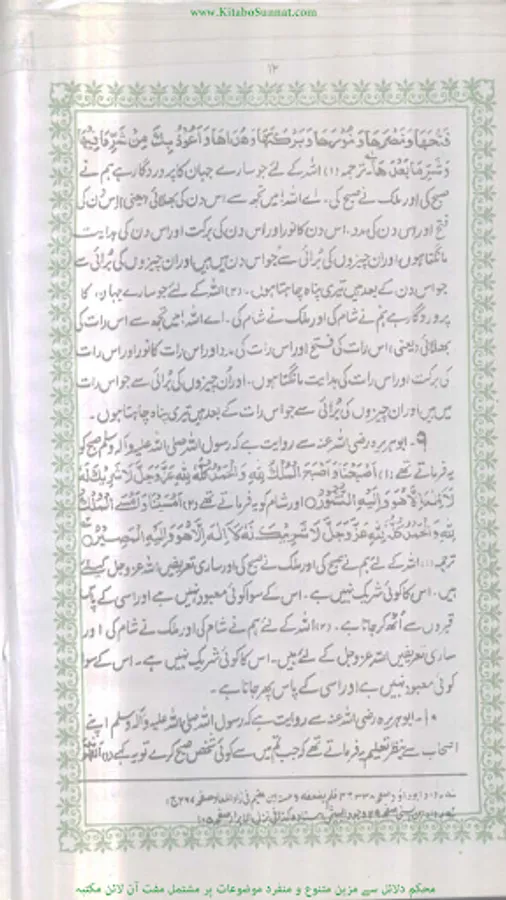 www.KitaboSunnat.com
۱۲
فَتْحَهَا وَنَصْرَهَا وَنُوْرَهَا وَبَرَكَتَهَا وَهُدَاهَا وَاَعُوْذُ بِكَ مِنْ شَرِّ مَا فِيْهَا
وَشَرِّ مَا بَعْدَهَا۔ ترجمہ (۱) اللہ کے لئے جو سارے جہان کا پروردگار ہے ہم نے
صبح کی اور ملک نے صبح کی۔ اے اللہ! میں تجھ سے اس دن کی بھلائی (یعنی) اس دن کی
فتح اور اس دن کی مدد۔ اس دن کا نور اور اس دن کی برکت اور اس دن کی ہدایت
مانگتا ہوں اور ان چیزوں کی بُرائی سے جو اس دن میں ہیں اور ان چیزوں کی بُرائی سے
جو اس دن کے بعد ہیں تیری پناہ چاہتا ہوں۔ (۲) اللہ کے لئے جو سارے جہان کا
پروردگار ہے ہم نے شام کی اور ملک نے شام کی۔ اے اللہ! میں تجھ سے اس رات کی
بھلائی (یعنی) اس رات کی فتح اور اس رات کی مدد اور اس رات کا نور اور اس رات
کی برکت اور اس رات کی ہدایت مانگتا ہوں۔ اور ان چیزوں کی بُرائی سے جو اس رات
میں ہیں اور ان چیزوں کی بُرائی سے جو اس رات کے بعد ہیں تیری پناہ چاہتا ہوں۔
۹۔ ابو ہریرہ رضی اللہ عنہ سے روایت ہے کہ رسول اللہ صلی اللہ علیہ وآلہ وسلم صبح کو
یہ فرماتے تھے (۱) اَصْبَحْنَا وَاَصْبَحَ الْمُلْكُ لِلّٰهِ وَالْحَمْدُ كُلُّهُ لِلّٰهِ عَزَّ وَجَلَّ لَا شَرِيْكَ لَهُ
لَا اِلٰهَ اِلَّا هُوَ وَاِلَيْهِ النُّشُوْرُ ○ اور شام کو یہ فرماتے تھے (۲) اَمْسَيْنَا وَاَمْسَى الْمُلْكُ
لِلّٰهِ وَالْحَمْدُ كُلُّهُ لِلّٰهِ عَزَّ وَجَلَّ لَا شَرِيْكَ لَهُ لَا اِلٰهَ اِلَّا هُوَ وَاِلَيْهِ الْمَصِيْرُ ○
ترجمہ (۱) اللہ کے لئے ہم نے صبح کی اور ملک نے صبح کی اور ساری تعریفیں اللہ عزوجل کیلئے
ہیں۔ اس کا کوئی شریک نہیں ہے۔ اس کے سوا کوئی معبود نہیں ہے اور اسی کے پاس
قبروں سے اُٹھ کر جانا ہے۔ (۲) اللہ کے لئے ہم نے شام کی اور ملک نے شام کی اور
ساری تعریفیں اللہ عزوجل کے لئے ہیں۔ اس کا کوئی شریک نہیں ہے۔ اس کے سوا
کوئی معبود نہیں ہے اور اسی کے پاس پھر جانا ہے۔
۱۰۔ ابو ہریرہ رضی اللہ عنہ سے روایت ہے کہ رسول اللہ صلی اللہ علیہ وآلہ وسلم اپنے
اصحاب سے بنظر تعلیم یہ فرماتے تھے کہ جب تم میں سے کوئی شخص صبح کرے تو یہ کہے (۱) اَللّٰهُمَّ
محکم دلائل سے مزین متنوع و منفرد موضوعات پر مشتمل مفت آن لائن مکتبہ